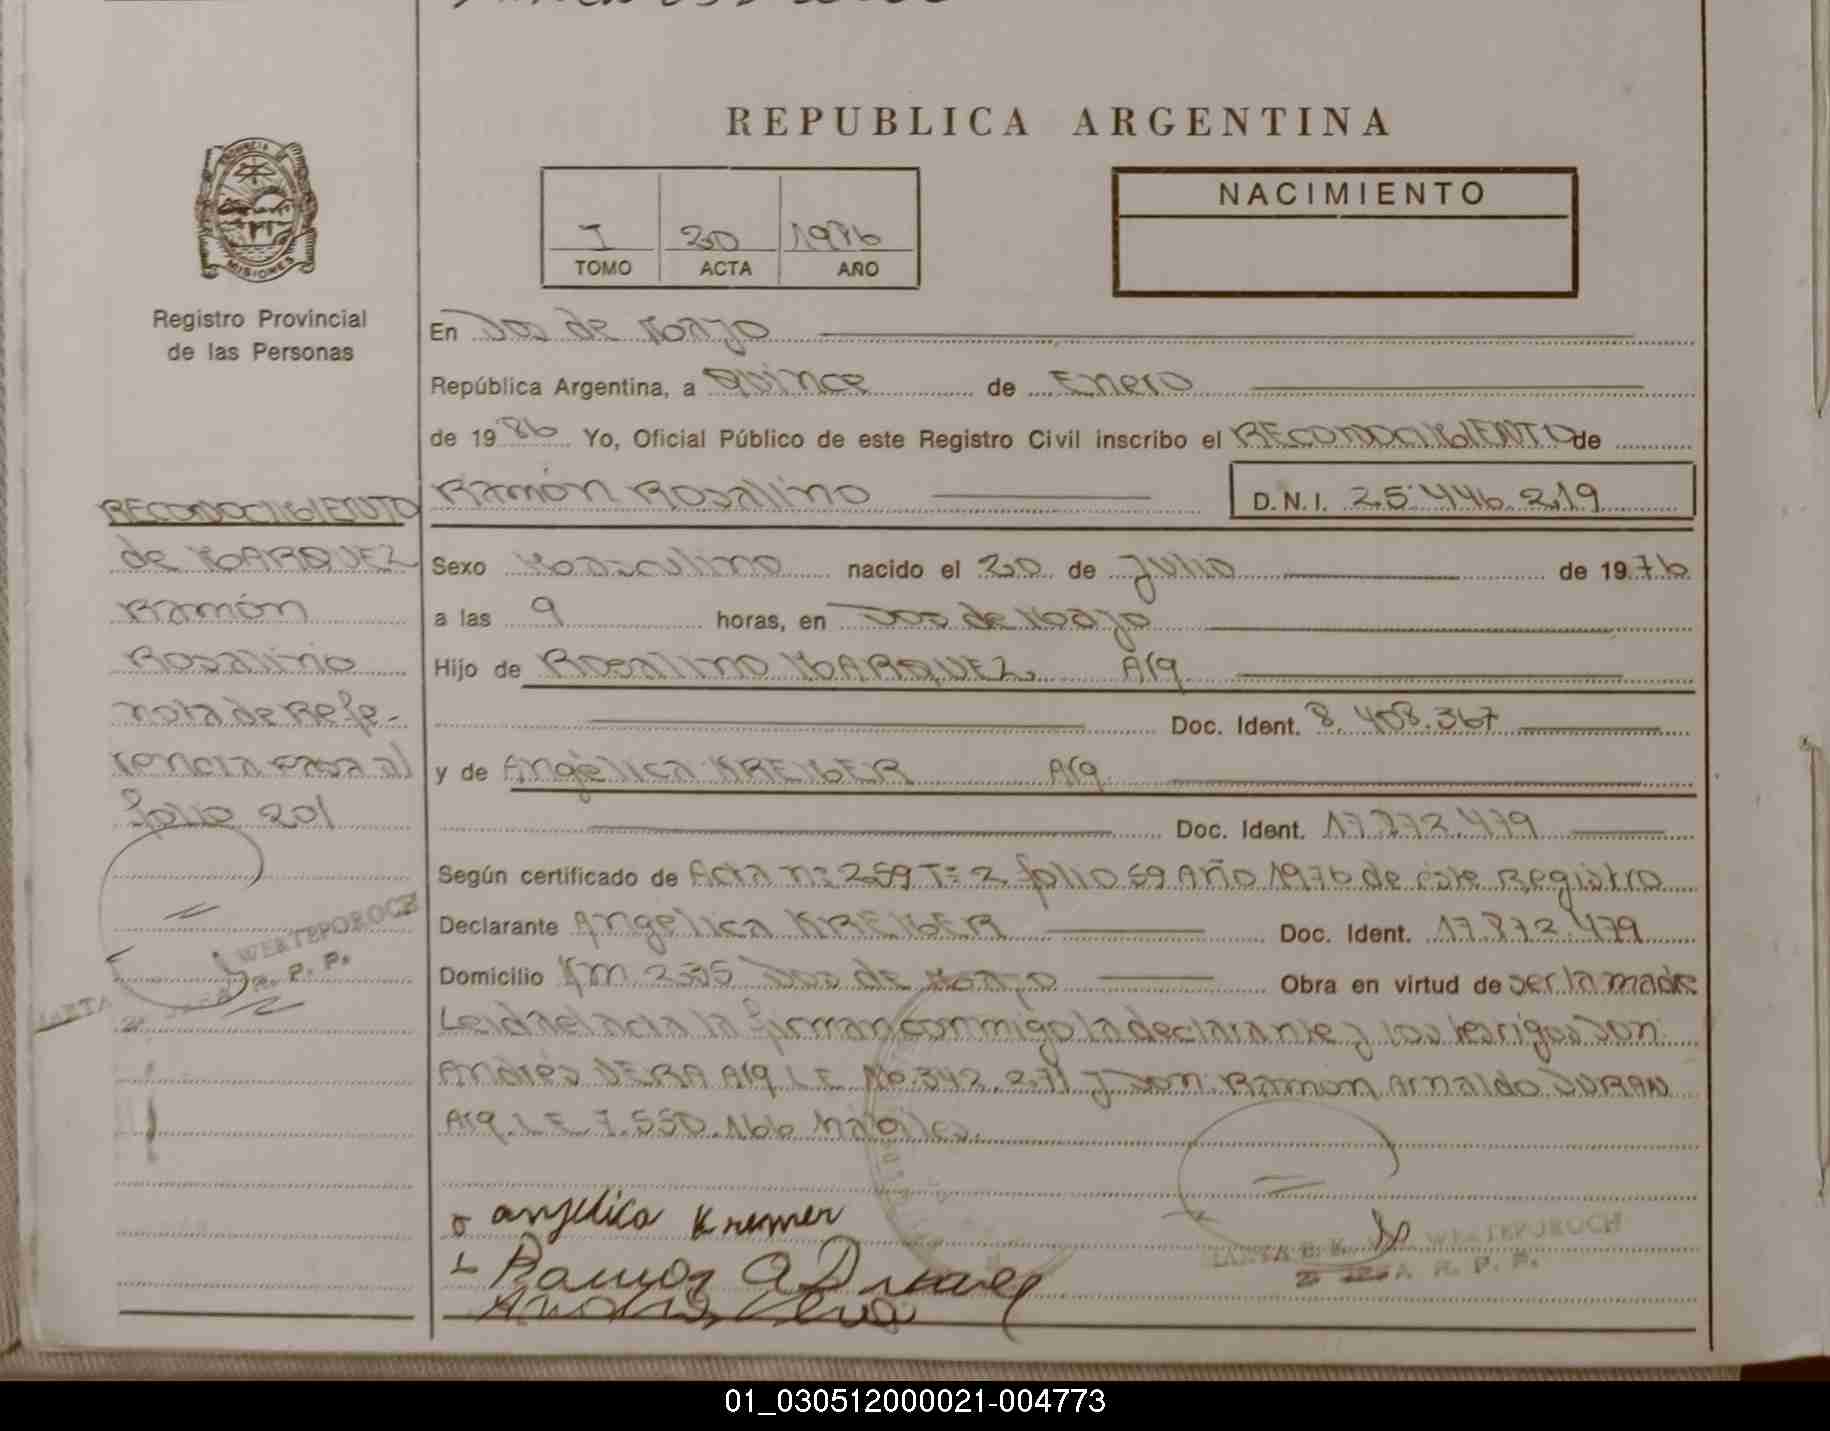 REPUBLICA ARGENTINA
PROVINCIA DE
MISIONES
Registro Provincial
de las Personas
I 20
TOMO ACTA AÑO
NACIMIENTO
En Dos de Mayo
República Argentina, a Quince de Enero
de 1986 Yo, Oficial Público de este Registro Civil inscribo el RECONOCIMIENTO de
Ramón Rosalino D.N.I. 25.446.219
RECONOCIMIENTO
de MARQUEZ
Ramón
Rosalino
nota de Refe-
rencia pasa al
folio 201
Sexo Masculino nacido el 20 de Julio de 1976
a las 9 horas, en Dos de Mayo
Hijo de Rosalino MARQUEZ Arg
Doc. Ident. 8.408.367
y de Angélica KREMER Arg
Doc. Ident.
Según certificado de Acta nº 259 Tº 2 folio 59 Año 1976 de este Registro
Declarante Angelica KREMER Doc. Ident. 17.872.479
Domicilio Km Dos de Mayo Obra en virtud de ser la madre
Leida el acta la firman conmigo la declarante y los testigos Don
Andrés VERA Arg L.E. y Don Ramón Arnaldo DURAN
Arg. L.E. 7.550.166 hábiles.
angelica Kremer
WERTEPOROCH
R. P. P.
WERTEPOROCH
R. P. P.
01_030512000021-004773